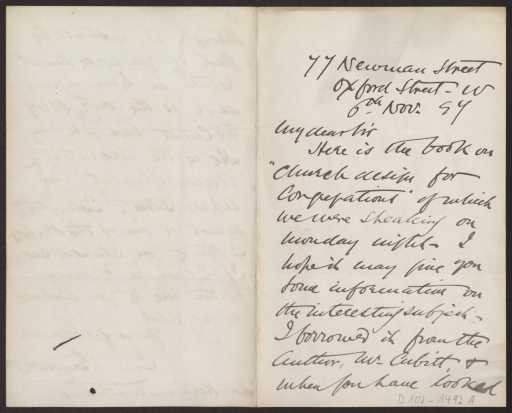 77 Newman Street
Oxford Street - W
6th Nov. 97
My dear Sir
Here is the book on
"Church design for
Congregations" of which
we were speaking on
Monday night - I
hope it may give you
some information on
the interesting subject -
I borrowed it from the
Author, Mr. Cubitt, &
when you have looked
D 102 - 1492 A